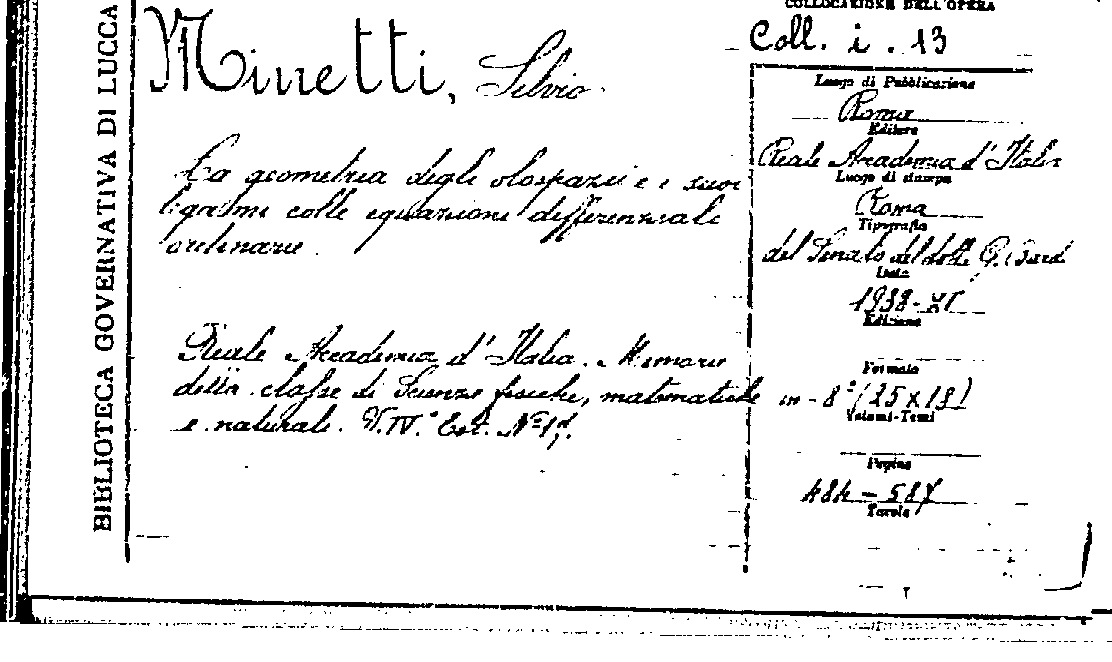 BIBLIOTECA GOVERNATIVA DI LUCCA
Minetti, Silvio
La geometria degli olospazii e i suoi
legami colle equazioni differenziale
ordinarie.
Reale Accademia d'Italia. Memorie
della classe di Scienze fisiche, matematiche
e naturali. V. IV.° Est. N° 17.
COLLOCAZIONE DELL'OPERA
Coll. i. 13
Luogo di Pubblicazione
Roma
Editore
Reale Accademia d'Italia
Luogo di stampa
Roma
Tipografia
del Senato del dott. G. Bardi
Data
Edizione
Formato
in - 8° (25 x 18)
Volumi-Tomi
Pagine
484 - 587
Tavole